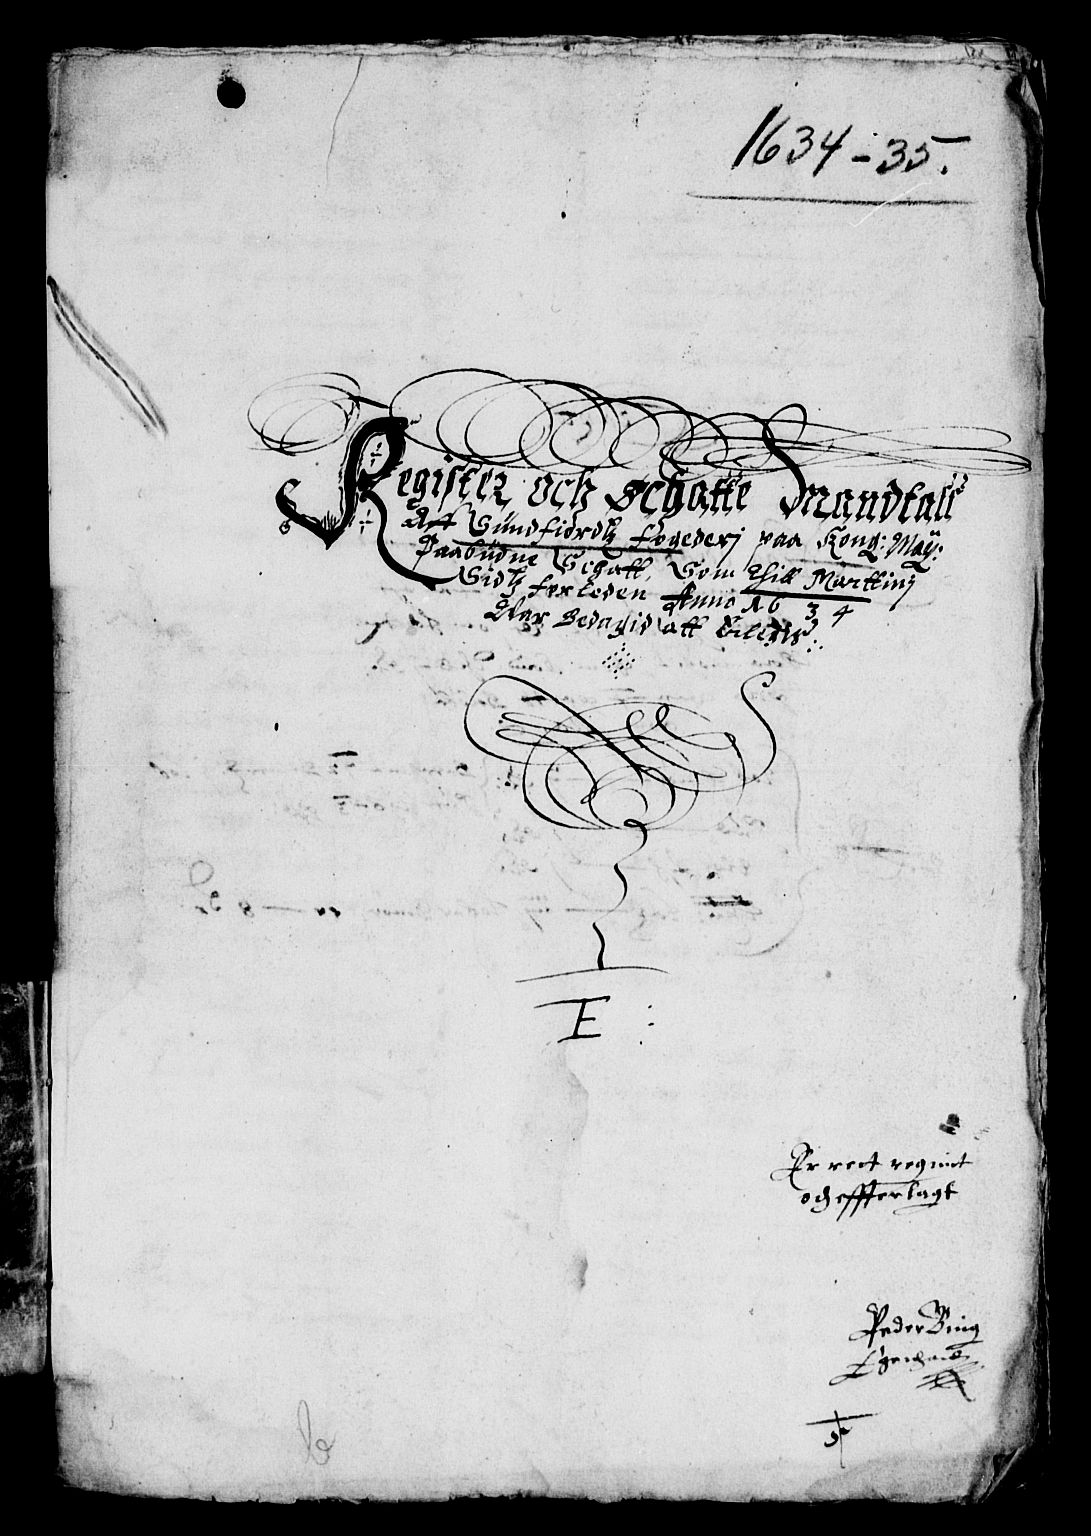 1634-35.
Register och Schatte Mandtall
Aff Sundfiordtz fogederj paa Kong: May:
Paabudne Schatt, Som thill Marttinj
Sidtz forleden Anno 1634
War Bedagid att
E:
Er rect regnit
och effterlagt
Peder Bing
Egenhand